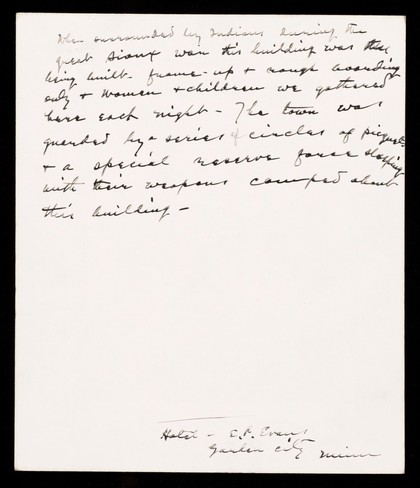 When surrounded by Indians during the
great Sioux war this building was then
being built - frame - up + rough boarding
only + women + children we gathered
here each night - The town was
guarded by a series of circles of piquets
+ a special reserve force sleeping
with their weapons camped about
this building -
Hotel - C.P. Evans
Garden City Minn